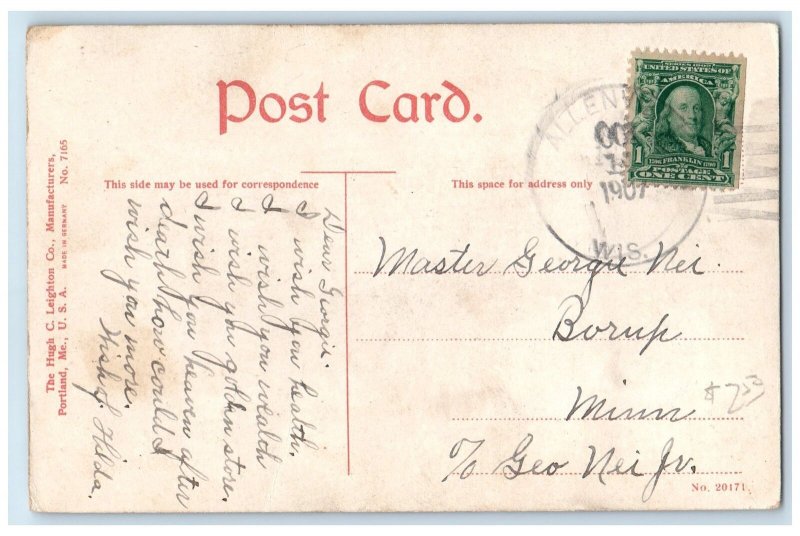 Post Card.
This side may be used for correspondence
This space for address only
The Hugh C. Leighton Co., Manufacturers,
Portland, Me., U. S. A. MADE IN GERMANY No. 7165
Dear Georgie.
I wish you health.
I wish you wealth
I wish you golden store.
I wish you heaven after
death how could I
wish you more.
Hilda.
SERIES 1902
UNITED STATES OF
AMERICA
1 FRANKLIN 1
POSTAGE
ONE CENT
1907
WIS.
Master Georgie Nei.
Borup
Minn
$7.50
c/o Geo Nei Jr.
No. 20171.